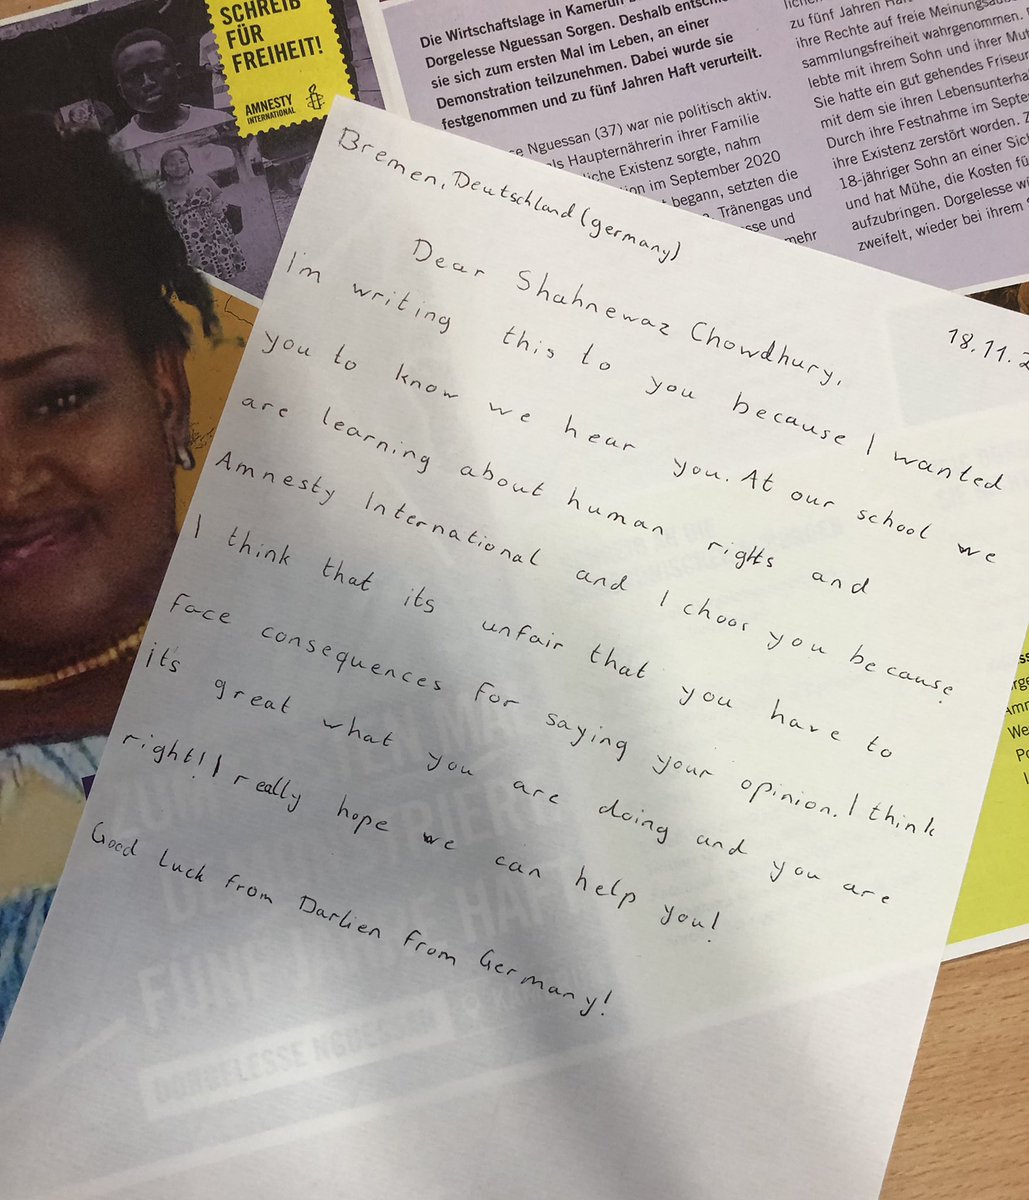 SCHREIB
FÜR
FREIHEIT!
AMNESTY
INTERNATIONAL
Die Wirtschaftslage in Kamerun
Dorgelesse Nguessan Sorgen. Deshalb
sie sich zum ersten Mal im Leben, an einer
Demonstration teilzunehmen. Dabei wurde sie
festgenommen und zu fünf Jahren Haft verurteilt.
Nguessan (37) war nie politisch aktiv.
als Haupternährerin ihrer Familie
Existenz sorgte, nahm
im September 2020
begann, setzten die
Tränengas und
und
mehr
zu fünf Jahren
ihre Rechte auf freie
sammlungsfreiheit wahrgenommen.
lebte mit ihrem Sohn und ihrer
Sie hatte ein gut gehendes
mit dem sie ihren
Durch ihre Festnahme im
ihre Existenz zerstört worden.
18-jähriger Sohn an einer
und hat Mühe, die Kosten
aufzubringen. Dorgelesse
zweifelt, wieder bei ihrem
Bremen, Deutschland (germany)
18.11.2
Dear Shahnewaz Chowdhury,
I'm writing this to you because I wanted
you to know we hear you. At our school we
are learning about human rights and
Amnesty International and I choos you because
I think that its unfair that you have to
face consequences for saying your opinion. I think
it's great what you are doing and you are
right! I really hope we can help you!
Good luck from Darlien from Germany!
DORGELESSE